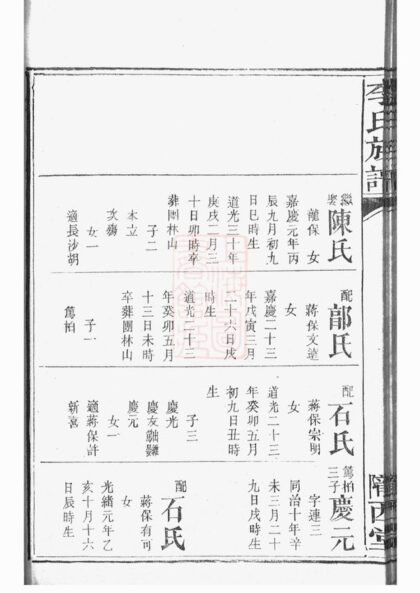 李氏族譜
隴西堂
繼娶陳氏
龍保 女
嘉慶元年丙
辰九月初九
日巳時生
道光三十年
庚戌二月三
十日卯時卒
葬團林山
子二
木立
次殤
女一
適長沙胡
配鄔氏
蔣保文
女
嘉慶二十三
年戊寅三月
二十六日戌
時生
道光二十三
年癸卯五月
十三日未時
卒葬團林山
子一
篤柏
配石氏
蔣保崇明
女
道光二十三
年癸卯五月
初九日丑時
生
子三
慶光
慶友
慶元
女一
適蔣保許
新喜
篤柏三子慶元
字連三
同治十年辛
未三月二十
九日戌時生
配石氏
蔣保有可
女
光緒元年乙
亥十月十六
日辰時生